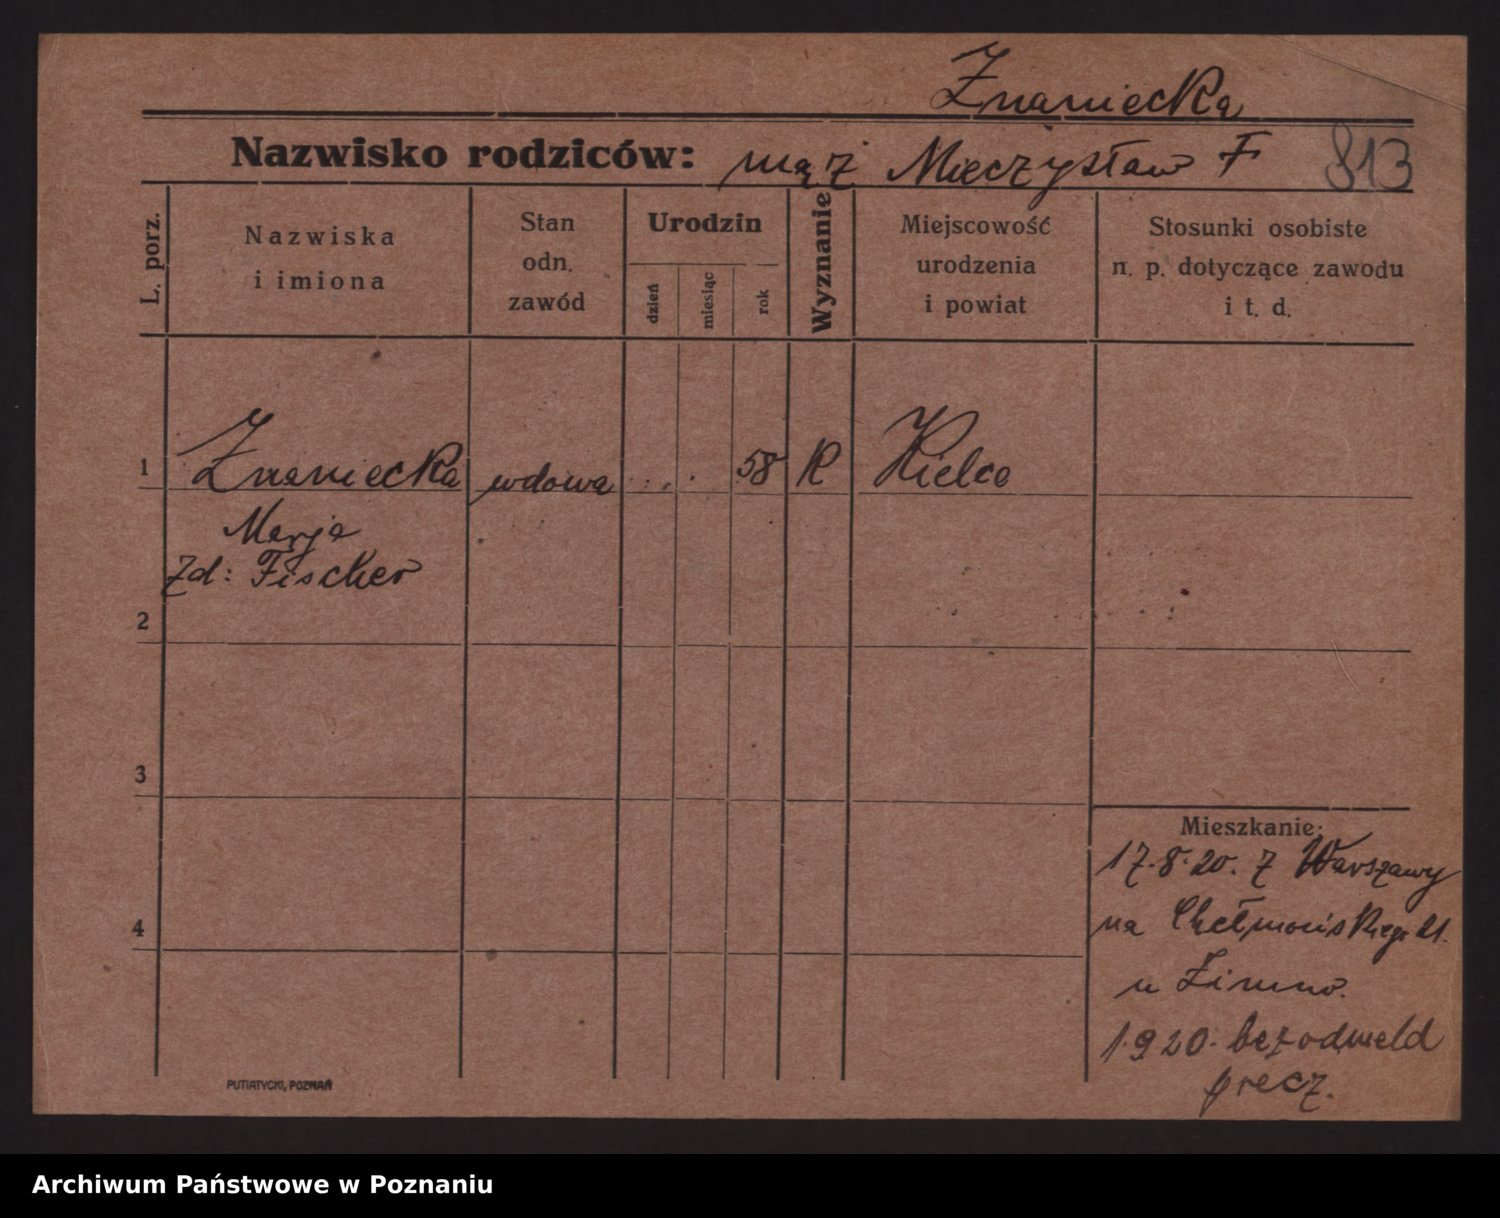 Znaniecka
Nazwisko rodziców: mąż Mieczysław F 813
L. porz.
Nazwiska
i imiona
Stan
odn.
zawód
Urodzin
dzień
miesiąc
rok
Wyznanie
Miejscowość
urodzenia
i powiat
Stosunki osobiste
n. p. dotyczące zawodu
i t. d.
1 Znaniecka wdowa 58 R Kielce
Marja
Zd: Fischer
2
3
4
Mieszkanie:
17.8.20. z Warszawy
na Chełmońskiego 21.
u Zimno.
1.9 20. bez odmeld
precz.
PUTIATYCKI, POZNAŃ
Archiwum Państwowe w Poznaniu